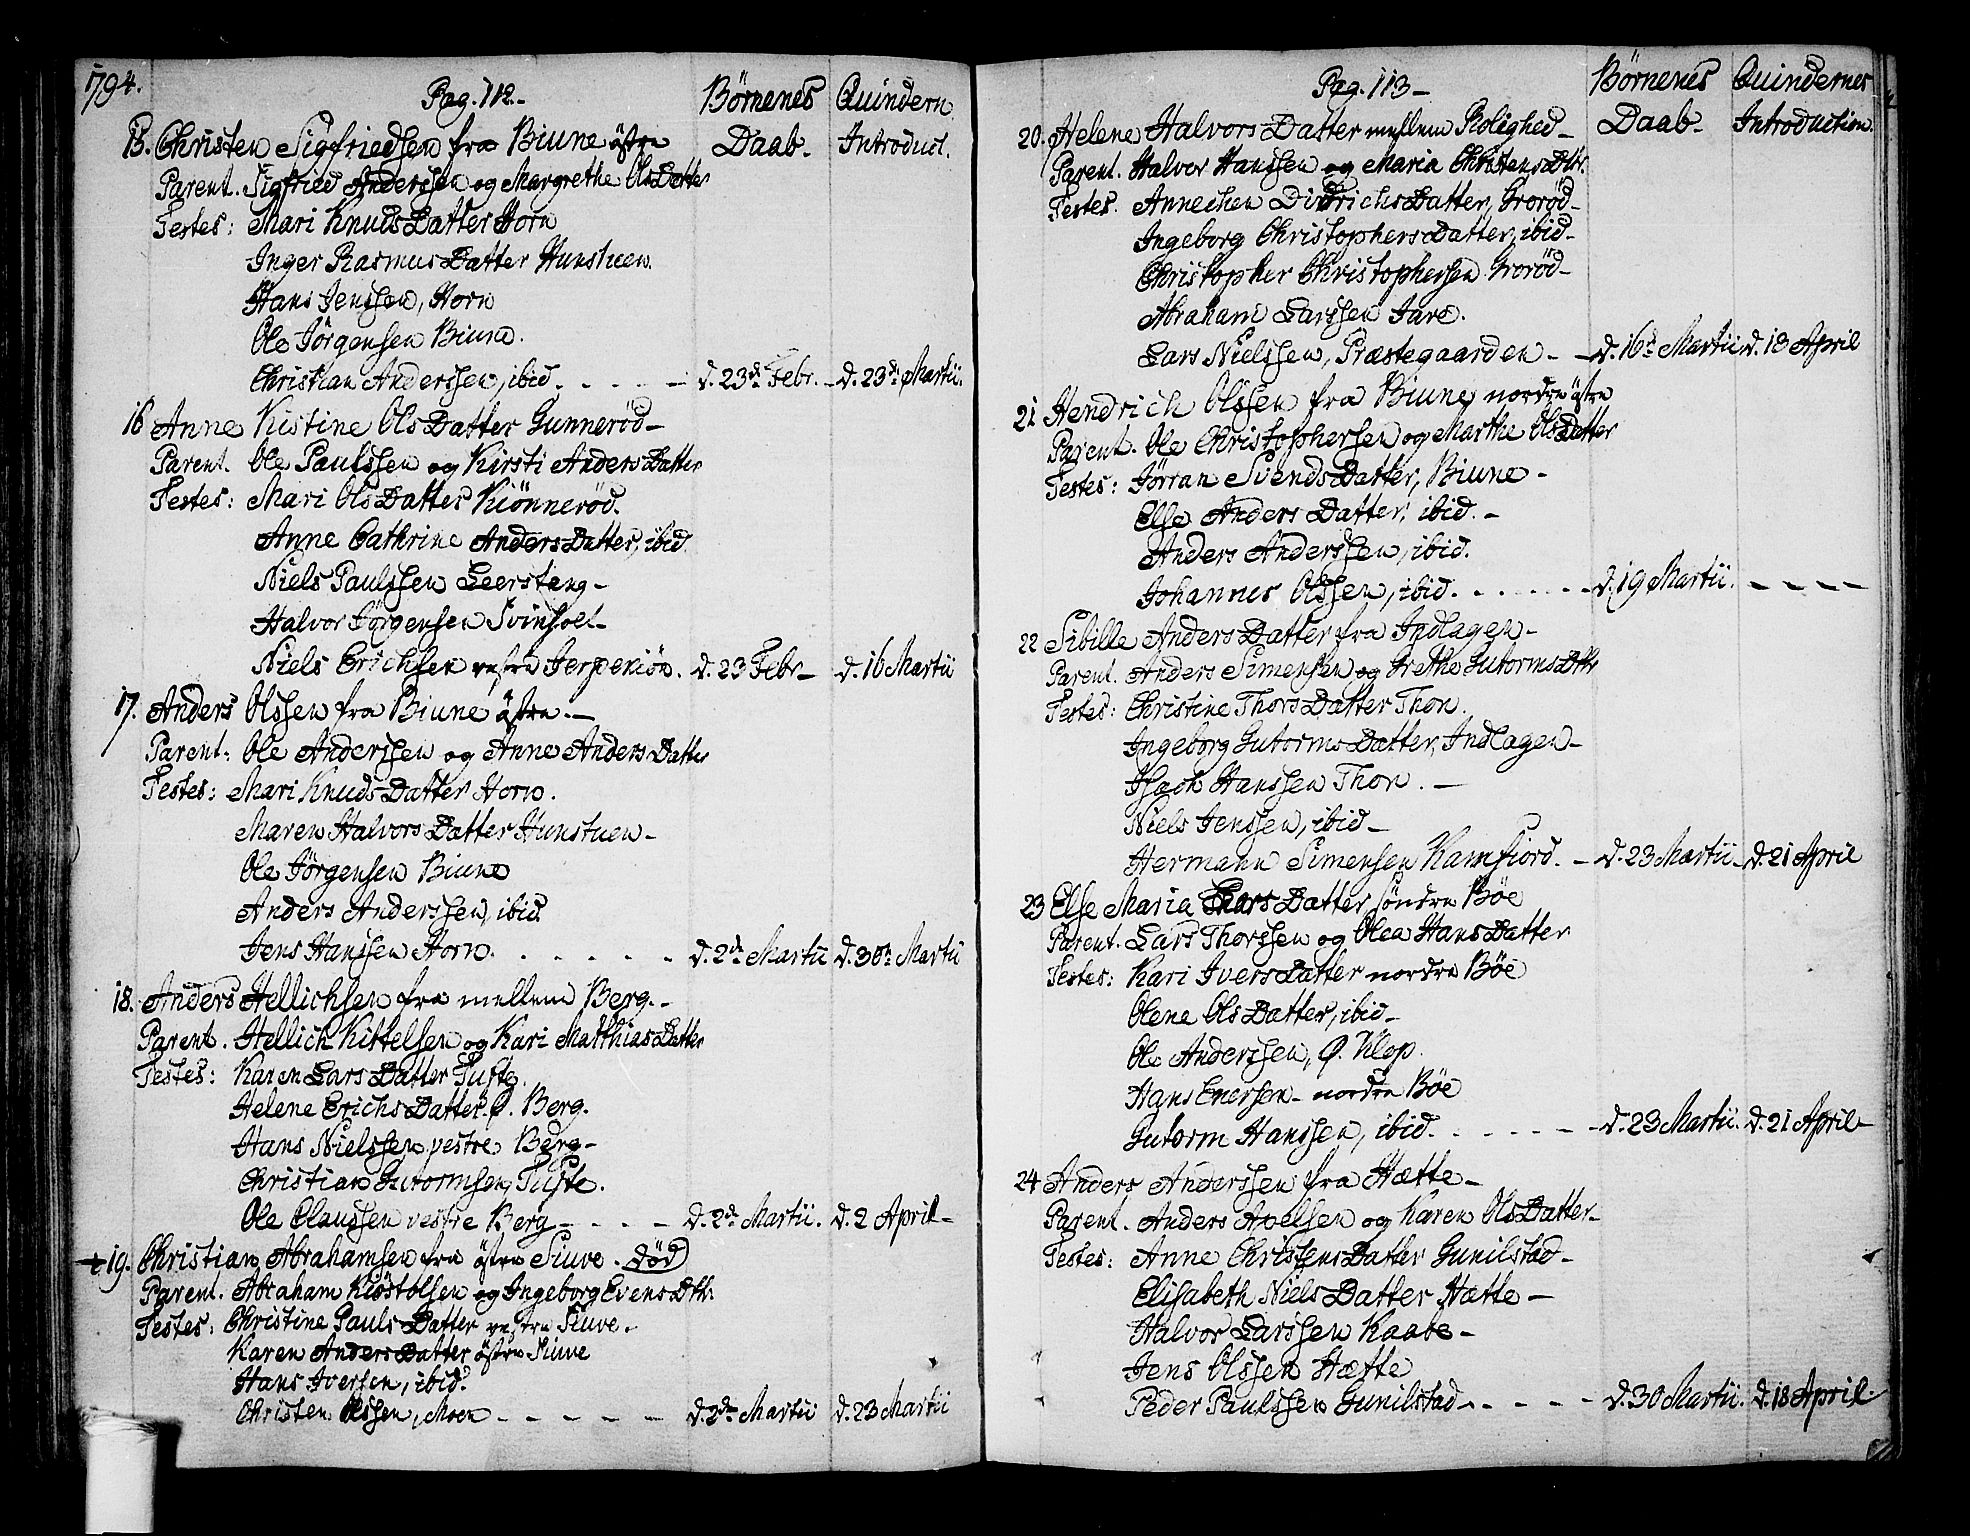 1794.
Pag. 112.-
Börnenes Daab.
Quindern. Introduct.
15. Christen Sigfriedsen fra Biune östre
Parent. Sigfried Anderssen og Margrethe OlsDatter
Testes: Mari KnudsDatter Horn
Inger RasmusDatter Hunstuen.
Hans Jenssen, Horn
Ole Jörgensen Biune.
Christian Anderssen, ibid. - - - - - d. 23de Febr. - d. 23de Martii.
16 Anne Kistine OlsDatter Gunneröd-
Parent. Ole Paulssen og Kirsti AndersDatter
Testes: Mari OlsDatter Kiönneröd.
Anne Cathrine AndersDatter, ibid.
Niels Paulssen Leerstang-
Halvor Jörgensen Svinsoel-
Niels Erichsen vestre Jerpekiön. d. 23 Febr- d. 16 Martii
17. Anders Olssen fra Biune östre.-
Parent: Ole Anderssen og Anne AndersDatter
Testes: Mari KnudsDatter Horn.
Maren HalvorsDatter Hunstuen-
Ole Jörgensen Biune
Anders Anderssen, ibid.
Jens Hanssen Horn. - - - - - d. 2de Martii d. 30te Martii
18. Anders Hellichsen fra mellem Berg.-
Parent. Hellich Kittelsen og Kari MatthiasDatter
Testes: Karen LarsDatter Tufte.
Helene ErichsDatter Ø. Berg.
Hans Nielssen vestre Berg-
Christian Gutormsen Tufte.
Ole Claussen vestre Berg - - - - d. 2de Martii. d. 2 April-
+ 19. Christian Abrahamsen fra östre Siuve. död
Parent. Abraham Kiöstolsen og Ingeborg EvensDtr.
Testes: Christine PaulsDatter vestre Siuve.
Karen AndersDatter östre Siuve
Hans Iversen, ibid.
Christen Olssen, Moen - - - - - d. 2de Martii d. 23 Martii
Pag. 113-
Börnenes Daab-
Quindernes Introduction.
20. Helene HalvorsDatter mellem Rolighed-
Parent. Halvor Hanssen og Maria ChristensDtr.
Testes. Annechen DidrichsDatter, Groröd-
Ingeborg ChristophersDatter, ibid-
Christopher Christophersen Groröd-
Abraham Larssen Jare.
Lars Nielssen, Præstegaarden - - d. 16de Martii d. 18 April
21 Hendrich Olssen fra Biune nordre östre
Parent. Ole Christophersen og Marthe OlsDatter
Testes: Jörran SvendsDatter, Biune -
Else AndersDatter, ibid. -
Anders Anderssen, ibid.
Johannes Olssen, ibid. - - - - - - d. 19 Martii. - - - -
22 Sibille AndersDatter fra Indlagen-
Parent. Anders Simensen og Grethe GutormsDtr
Testes: Christine ThorsDatter Thon.
Ingeborg GutormsDatter, Indlagen-
Isach Hanssen Thon. -
Niels Jenssen, ibid-
Hermann Simensen Kamfiord. - d. 23 Martii - d. 21 April
23 Else Maria LarsDatter söndre Böe
Parent. Lars Thorssen og Olea HansDatter
Testes: Kari IversDatter nordre Böe
Olene OlsDatter, ibid-
Ole Anderssen, Ø. Klep.
Hans Enersen - nordre Böe
Gutorm Hanssen, ibid. - - - - - - d. 23 Martii. d. 21 April-
24 Anders Anderssen fra Hætte-
Parent. Anders Axelsen og Karen OlsDatter-
Testes: Anne ChristensDatter Gunilstad-
Elisabeth NielsDatter Hætte -
Halvor Larssen Kaabe-
Jens Olssen Hætte
Peder Paulssen Gunilstad - - - - - d. 30 Martii. d. 18 April-